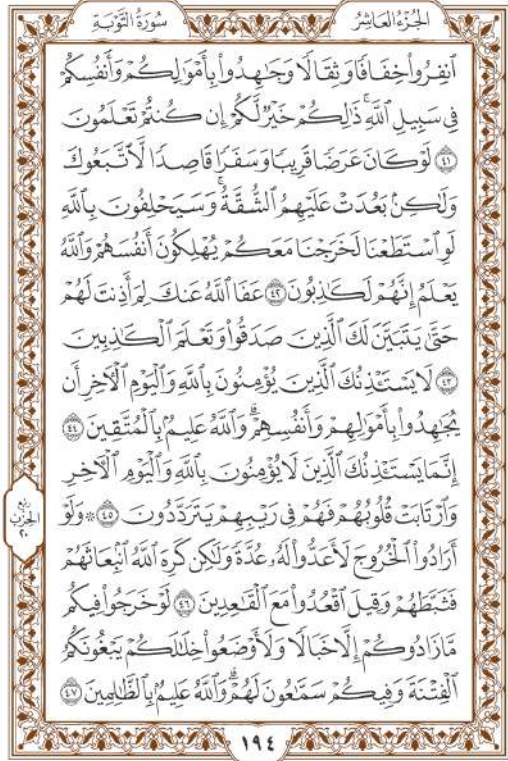 الجُزْءُ العَاشِرُ
سُورَةُ التَّوْبَةِ
ٱنفِرُوا۟ خِفَافًا وَثِقَالًا وَجَٰهِدُوا۟ بِأَمْوَٰلِكُمْ وَأَنفُسِكُمْ
فِى سَبِيلِ ٱللَّهِ ۚ ذَٰلِكُمْ خَيْرٌ لَّكُمْ إِن كُنتُمْ تَعْلَمُونَ
٤١ لَوْ كَانَ عَرَضًا قَرِيبًا وَسَفَرًا قَاصِدًا لَّٱتَّبَعُوكَ
وَلَٰكِنۢ بَعُدَتْ عَلَيْهِمُ ٱلشُّقَّةُ ۚ وَسَيَحْلِفُونَ بِٱللَّهِ
لَوِ ٱسْتَطَعْنَا لَخَرَجْنَا مَعَكُمْ يُهْلِكُونَ أَنفُسَهُمْ وَٱللَّهُ
يَعْلَمُ إِنَّهُمْ لَكَٰذِبُونَ ٤٢ عَفَا ٱللَّهُ عَنكَ لِمَ أَذِنتَ لَهُمْ
حَتَّىٰ يَتَبَيَّنَ لَكَ ٱلَّذِينَ صَدَقُوا۟ وَتَعْلَمَ ٱلْكَٰذِبِينَ
٤٣ لَا يَسْتَـْٔذِنُكَ ٱلَّذِينَ يُؤْمِنُونَ بِٱللَّهِ وَٱلْيَوْمِ ٱلْءَاخِرِ أَن
يُجَٰهِدُوا۟ بِأَمْوَٰلِهِمْ وَأَنفُسِهِمْ ۗ وَٱللَّهُ عَلِيمٌۢ بِٱلْمُتَّقِينَ ٤٤
إِنَّمَا يَسْتَـْٔذِنُكَ ٱلَّذِينَ لَا يُؤْمِنُونَ بِٱللَّهِ وَٱلْيَوْمِ ٱلْءَاخِرِ
وَٱرْتَابَتْ قُلُوبُهُمْ فَهُمْ فِى رَيْبِهِمْ يَتَرَدَّدُونَ ٤٥ ۞ وَلَوْ
أَرَادُوا۟ ٱلْخُرُوجَ لَأَعَدُّوا۟ لَهُۥ عُدَّةً وَلَٰكِن كَرِهَ ٱللَّهُ ٱنۢبِعَاثَهُمْ
فَثَبَّطَهُمْ وَقِيلَ ٱقْعُدُوا۟ مَعَ ٱلْقَٰعِدِينَ ٤٦ لَوْ خَرَجُوا۟ فِيكُم
مَّا زَادُوكُمْ إِلَّا خَبَالًا وَلَأَوْضَعُوا۟ خِلَٰلَكُمْ يَبْغُونَكُمُ
ٱلْفِتْنَةَ وَفِيكُمْ سَمَّٰعُونَ لَهُمْ ۗ وَٱللَّهُ عَلِيمٌۢ بِٱلظَّٰلِمِينَ ٤٧
رُبْعُ
الحِزْبِ
٢٠
١٩٤